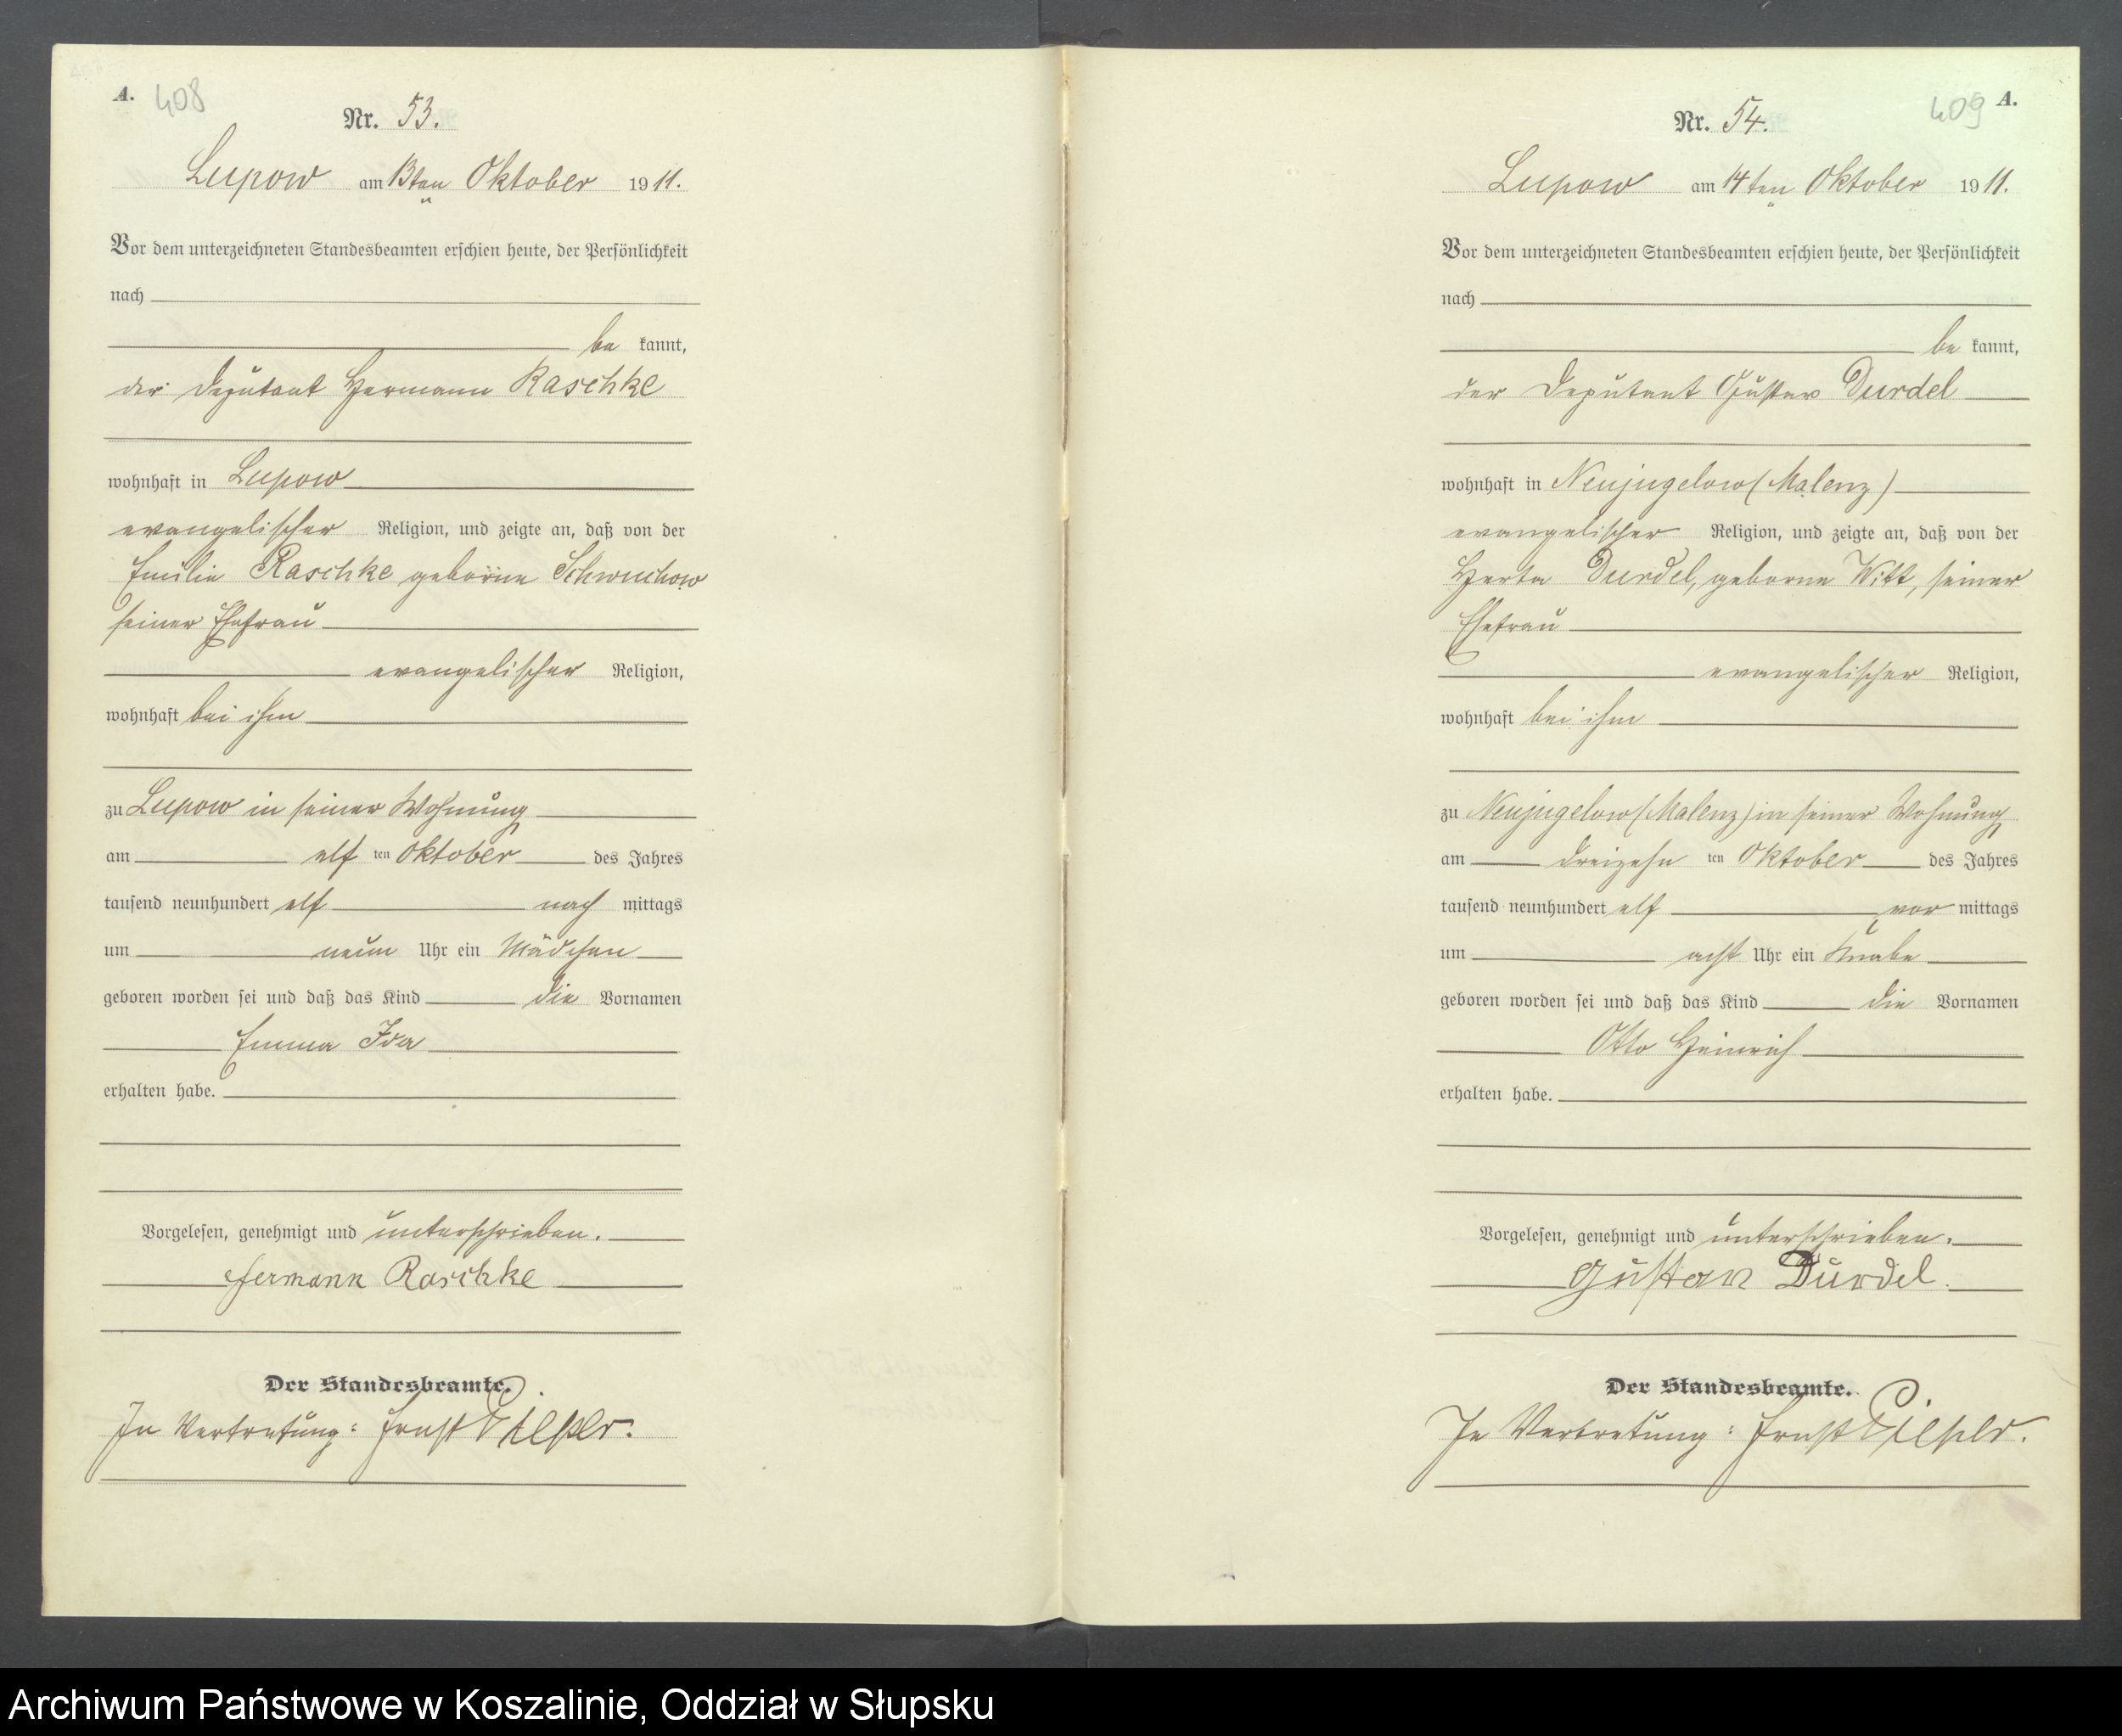 A. 408
Nr. 53.
Lupow am 13ten Oktober 1911.
Vor dem unterzeichneten Standesbeamten erschien heute, der Persönlichkeit
nach
be kannt,
der Deputant Hermann Raschke
wohnhaft in Lupow
evangelischer Religion, und zeigte an, daß von der
Emilie Raschke geborene Schwuchow
seiner Ehefrau
evangelischer Religion,
wohnhaft bei ihm
zu Lupow in seiner Wohnung
am elf ten Oktober des Jahres
tausend neunhundert elf nach mittags
um neun Uhr ein Mädchen
geboren worden sei und daß das Kind die Vornamen
Emma Ida
erhalten habe.
Vorgelesen, genehmigt und unterschrieben.
Hermann Raschke
Der Standesbeamte.
In Vertretung: Ernst
409 A.
Nr. 54.
Lupow am 14ten Oktober 1911.
Vor dem unterzeichneten Standesbeamten erschien heute, der Persönlichkeit
nach
be kannt,
der Deputant Gustav Durdel
wohnhaft in Neujugelow (Malenz)
evangelischer Religion, und zeigte an, daß von der
Herta Durdel, geborne Witt, seiner
Ehefrau
evangelischer Religion,
wohnhaft bei ihm
zu Neujugelow (Malenz) in seiner Wohnung
am dreizehn ten Oktober des Jahres
tausend neunhundert elf vor mittags
um acht Uhr ein Knabe
geboren worden sei und daß das Kind die Vornamen
Otto Heinrich
erhalten habe.
Vorgelesen, genehmigt und unterschrieben.
Gustav Durdel.
Der Standesbeamte.
In Vertretung: Ernst
Archiwum Państwowe w Koszalinie, Oddział w Słupsku